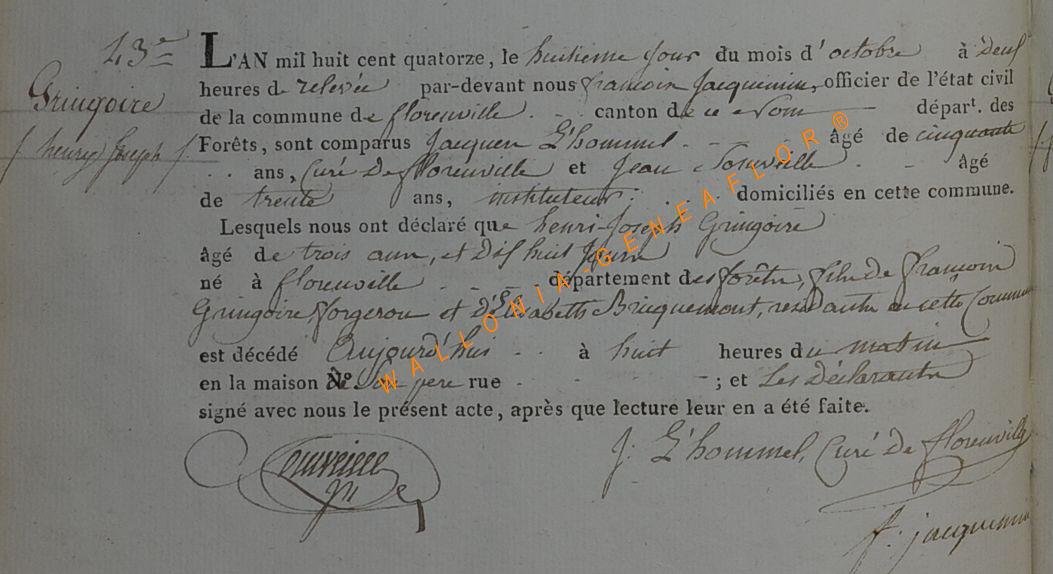 43e
Gringoire
henry Joseph
L'AN mil huit cent quatorze, le huitieme jour du mois d'octobre à deux
heures de relevée par-devant nous françois Jacquemin, officier de l'état civil
de la commune de florenville canton de ce Nom départ. des
Forêts, sont comparus Jacques L'hommel âgé de cinquante
ans, Curé De florenville et Jean âgé
de trente ans, instituteur domiciliés en cette commune.
Lesquels nous ont déclaré que henri-Joseph Gringoire
âgé de trois ans, et Dix huit Jours
né à florenville département des forêts, fils de françois
Gringoire forgeron et d'Elisabeth Bricquemont, residants en cette Commune
est décédé Aujourd'hui à huit heures du matin
en la maison de Son pere rue ; et Les Déclarants
signé avec nous le présent acte, après que lecture leur en a été faite.
J: L'hommel, Curé De florenville
f: jacquemin
WALLONIA-GENEAFLOR®